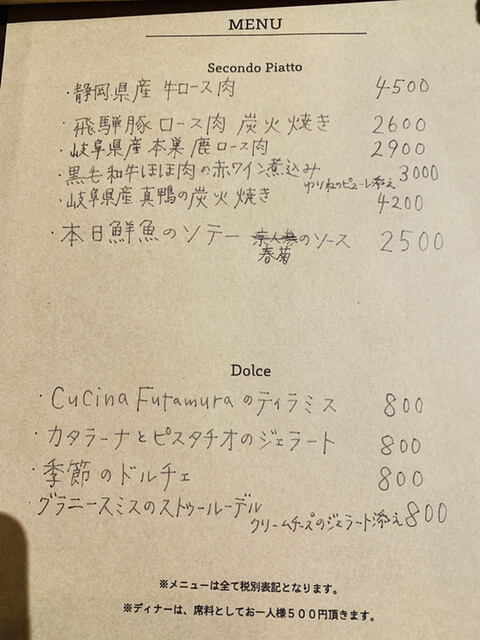 MENU
Secondo Piatto
・静岡県産 牛ロース肉 4500
・飛騨豚 ロース肉 炭火焼き 2600
・岐阜県産 本巣 鹿ロース肉 2900
・黒毛和牛ほほ肉の赤ワイン煮込み 3000
ゆりねのピューレ添え
・岐阜県産 真鴨の炭火焼き 4200
・本日鮮魚のソテー 京人参のソース 2500
春菊
Dolce
・Cucina Futamuraのティラミス 800
・カタラーナとピスタチオのジェラート 800
・季節のドルチェ 800
・グラニースミスのストゥルーデル
クリームチーズのジェラート添え 800
※メニューは全て税別表記となります。
※ディナーは、席料としてお一人様500円頂きます。